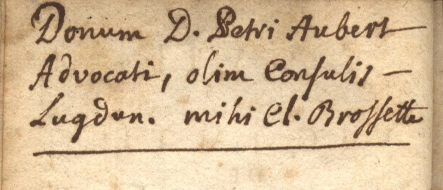 Donum D. Petri Aubert
Advocati, olim Consulis –
Lugdun. mihi Cl. Brossette